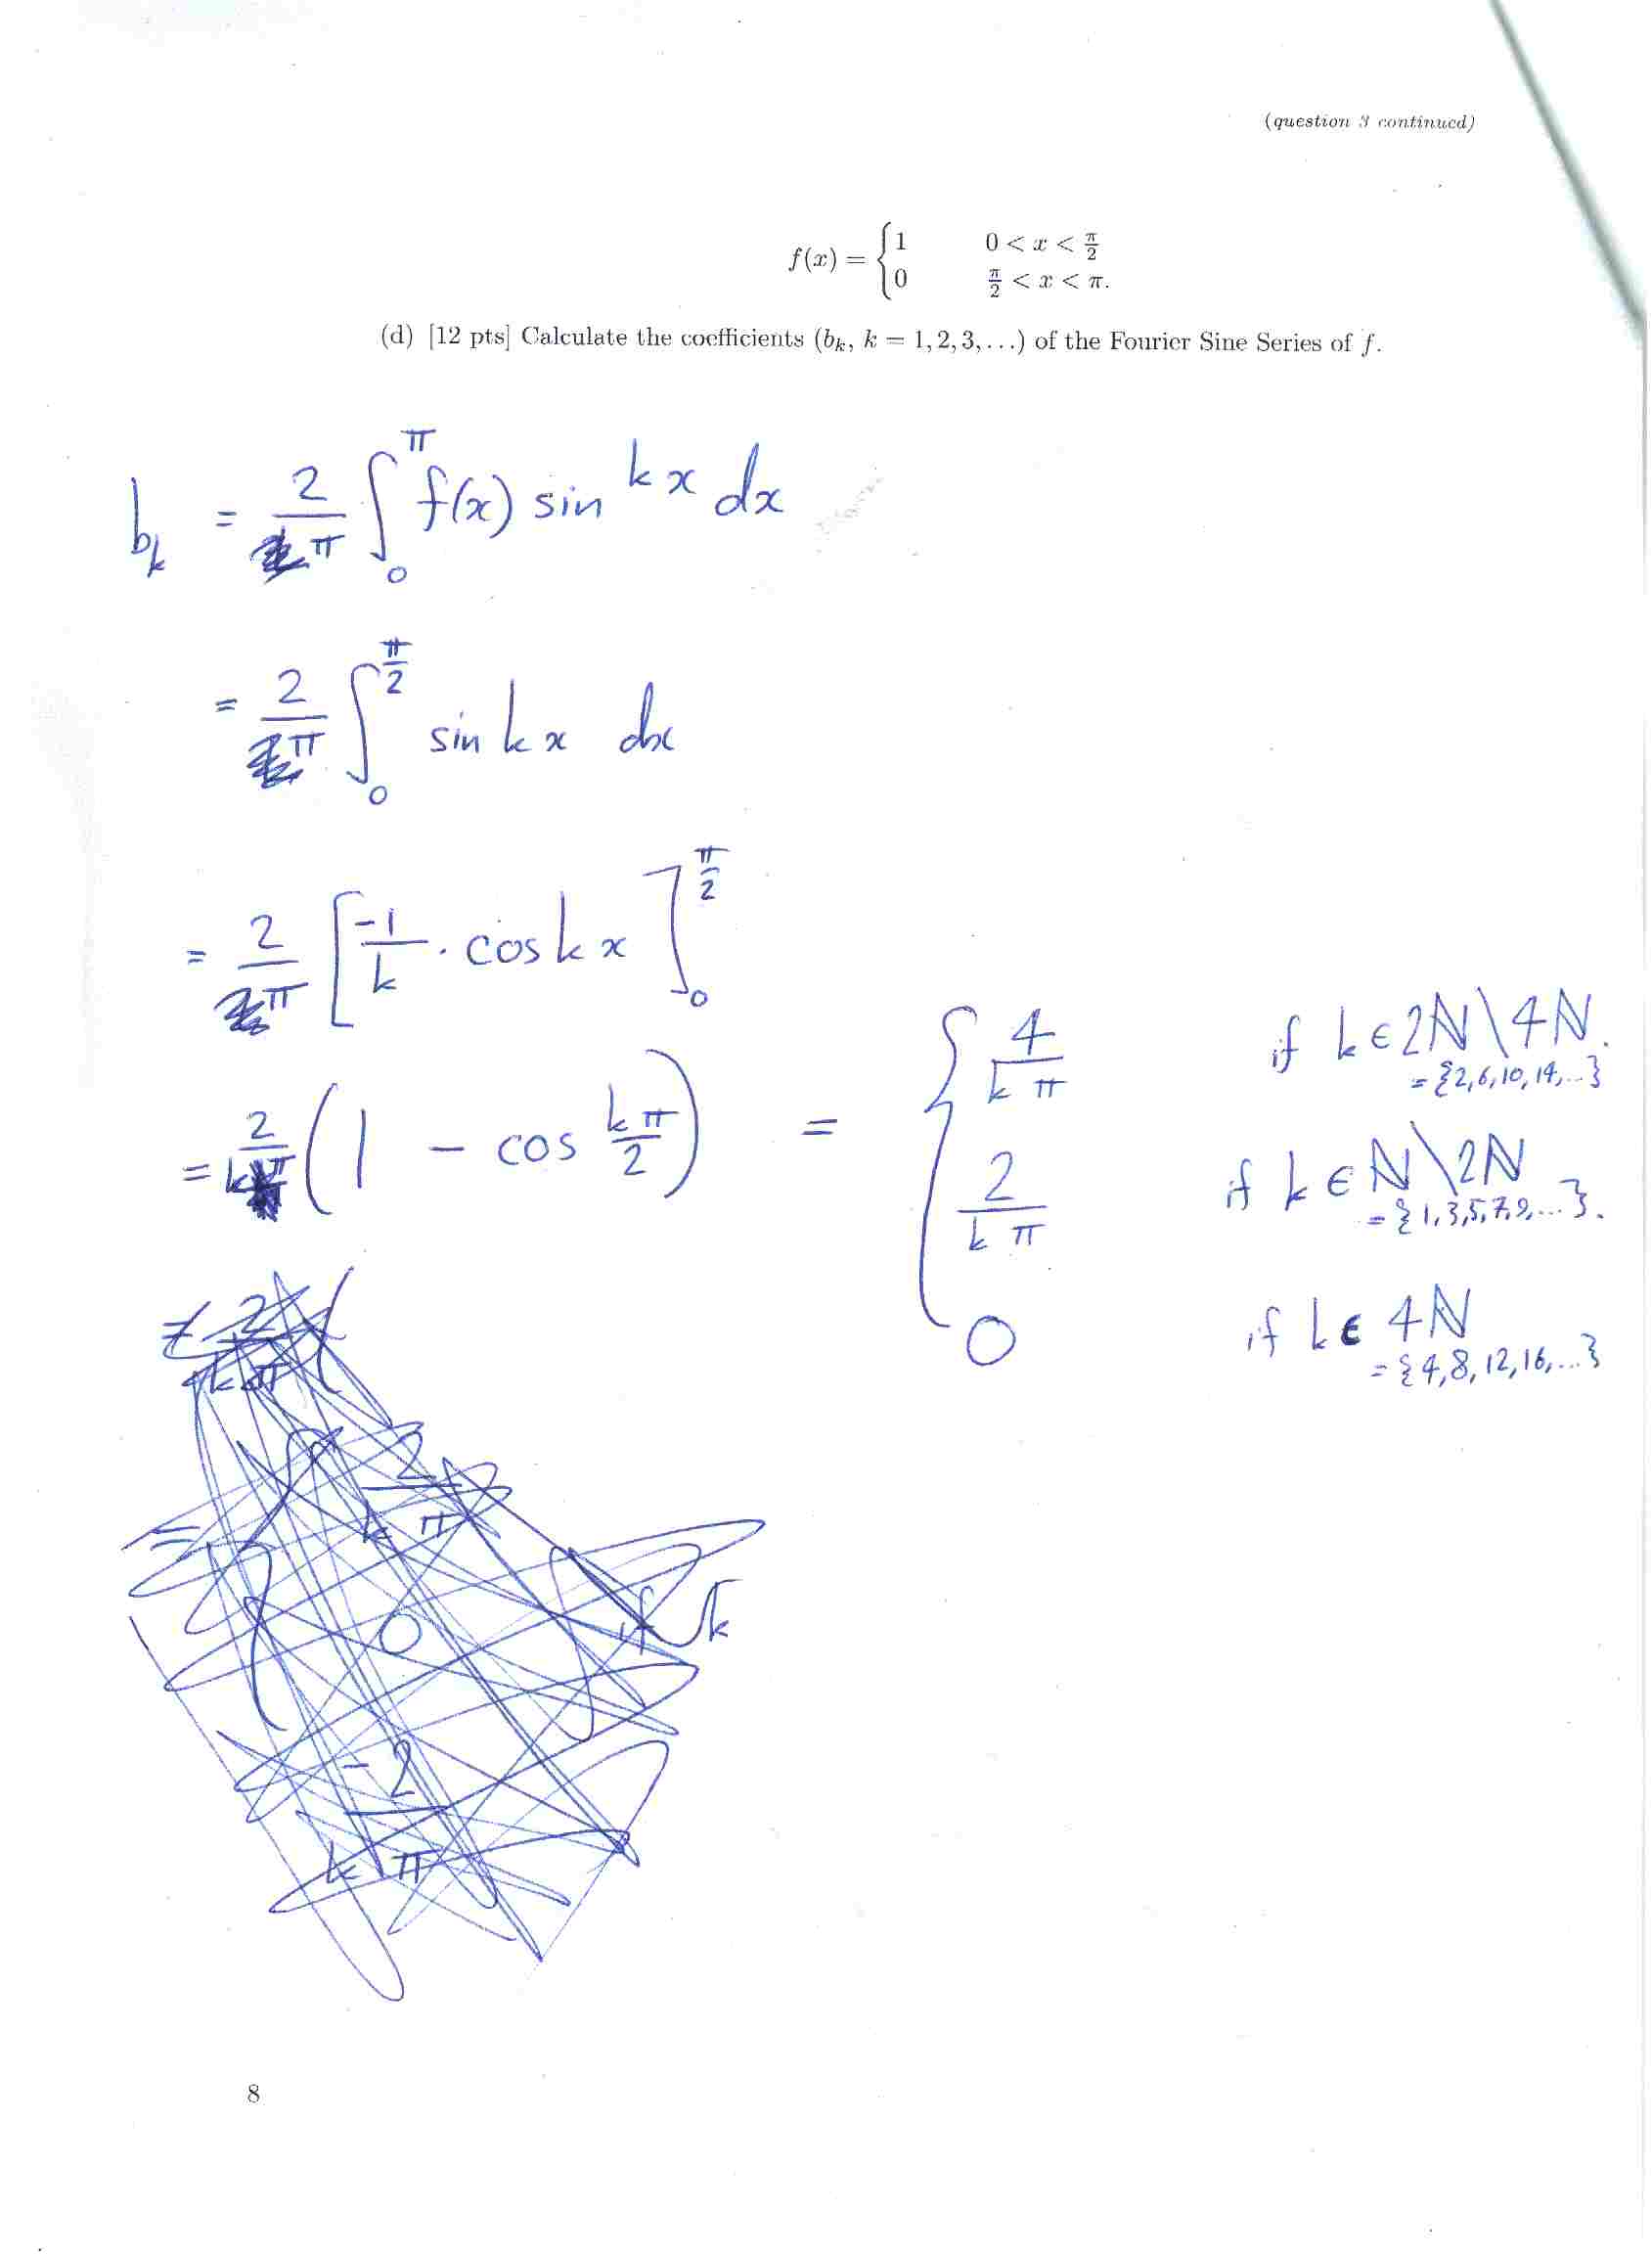 (question 3 continued)
f(x) = { 1 0 < x < π/2
0 π/2 < x < π.
(d) [12 pts] Calculate the coefficients (b_k, k = 1, 2, 3, ...) of the Fourier Sine Series of f.
b_k = 2/π ∫_0^π f(x) sin kx dx
= 2/π ∫_0^{π/2} sin kx dx
= 2/π [ -1/k · cos kx ]_0^{π/2}
= 2/kπ ( 1 - cos kπ/2 ) = { 4/kπ if k ∈ 2ℕ\4ℕ.
= {2,6,10,14,...}
2/kπ if k ∈ ℕ\2ℕ
= {1,3,5,7,9,...}.
0 if k ∈ 4ℕ
= {4,8,12,16,...}
= 2/kπ (
= { 2/kπ
0 if k
-2/kπ
8